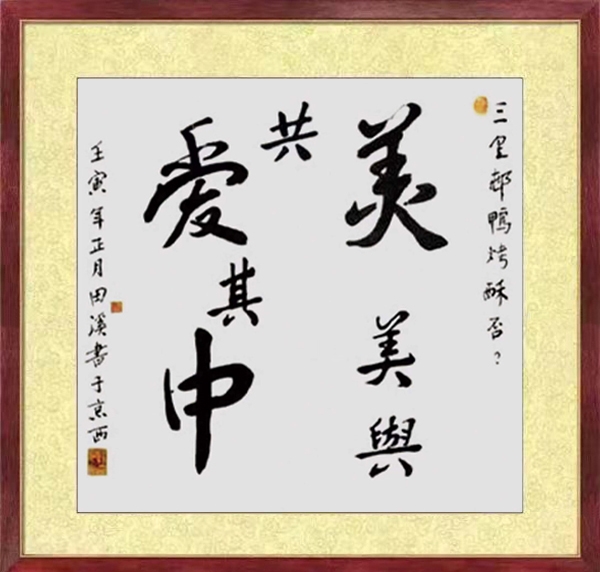 三里郝鴨烤酥否？
美美與
共其
爱申
壬寅年正月田溪書于京西